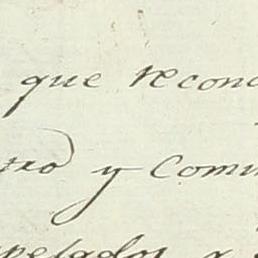 que recono
tro y Comu
pesados y